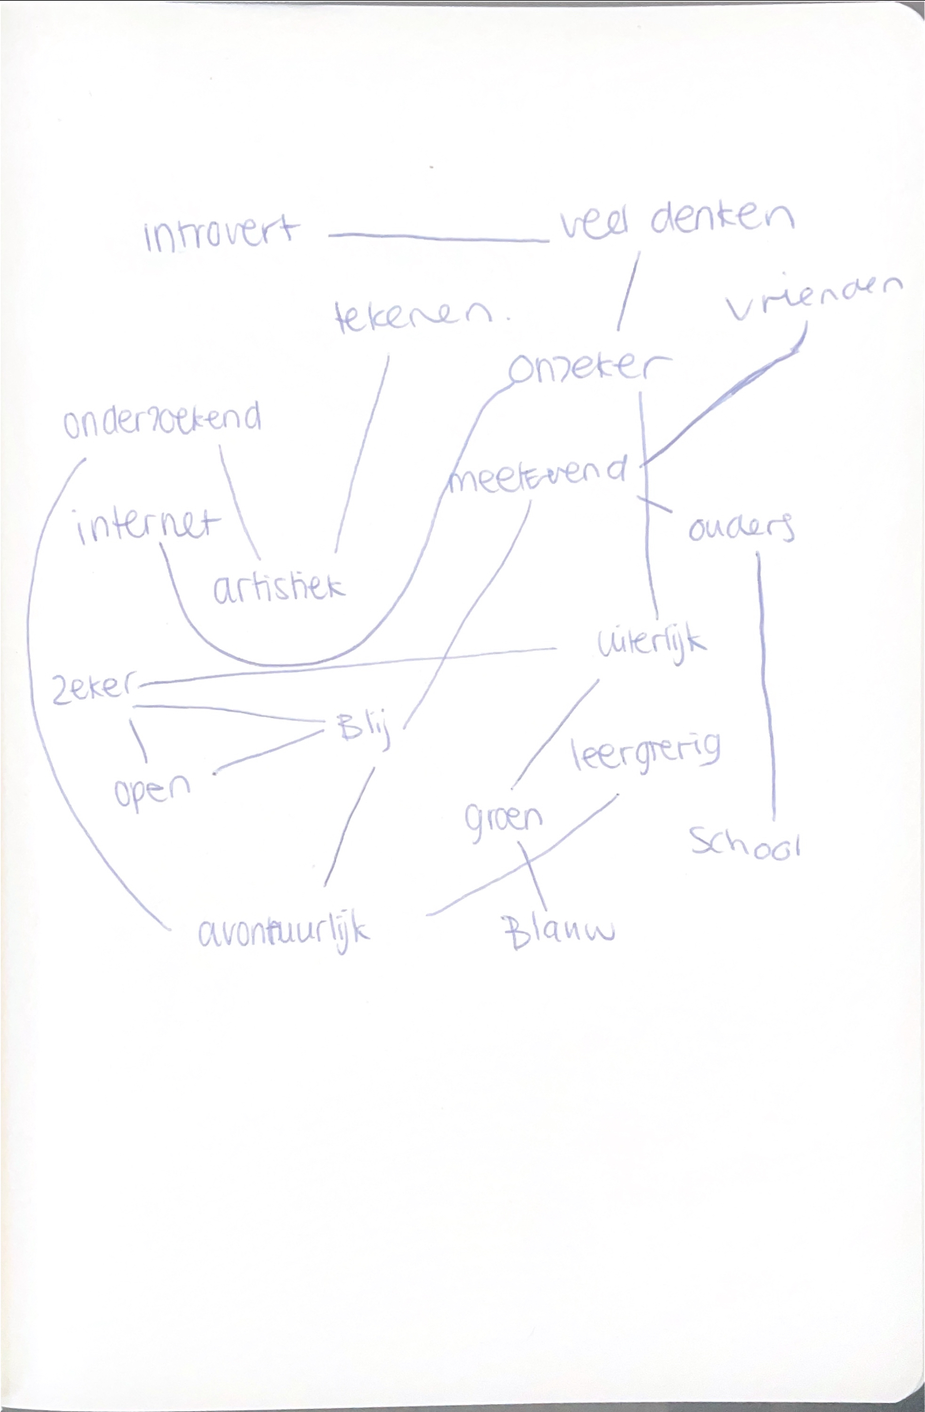 introvert
veel denken
vrienden
tekenen.
onzeker
onderzoekend
meelevend
internet
ouders
artistiek
uiterlijk
zeker
Blij
leergierig
open
groen
School
avontuurlijk
Blauw